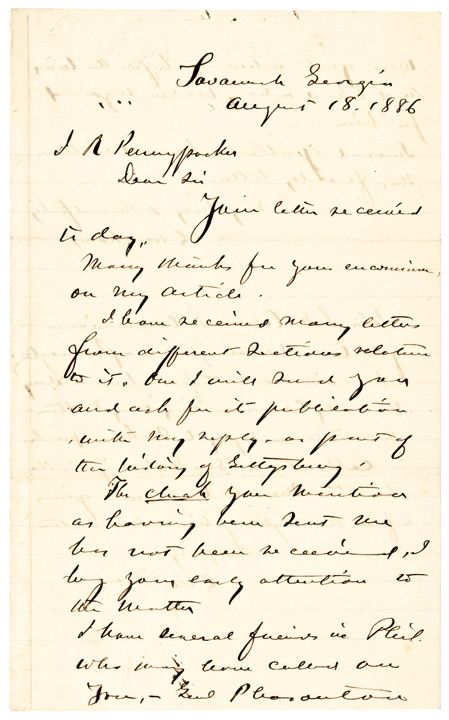 Savannah Georgia
August 18. 1886
I R Pennypacker
Dear Sir
Your letter received
to day,
Many thanks for your encomiums,
on my article.
I have received many letters
from different sections relative
to it. One I will send you
and ask for its publication
, with my reply. as part of
the history of Gettysburg.
The check you mention
as having been sent me
has not been received, I
beg your early attention to
the matter
I have several friends in Phil.
who may have called on
you, - Genl Pleasonton